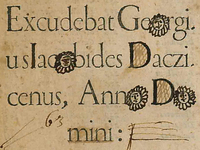 Excudebat Georgi.
us Iacobides Daczi.
cenus, Anno Do
63 mini: